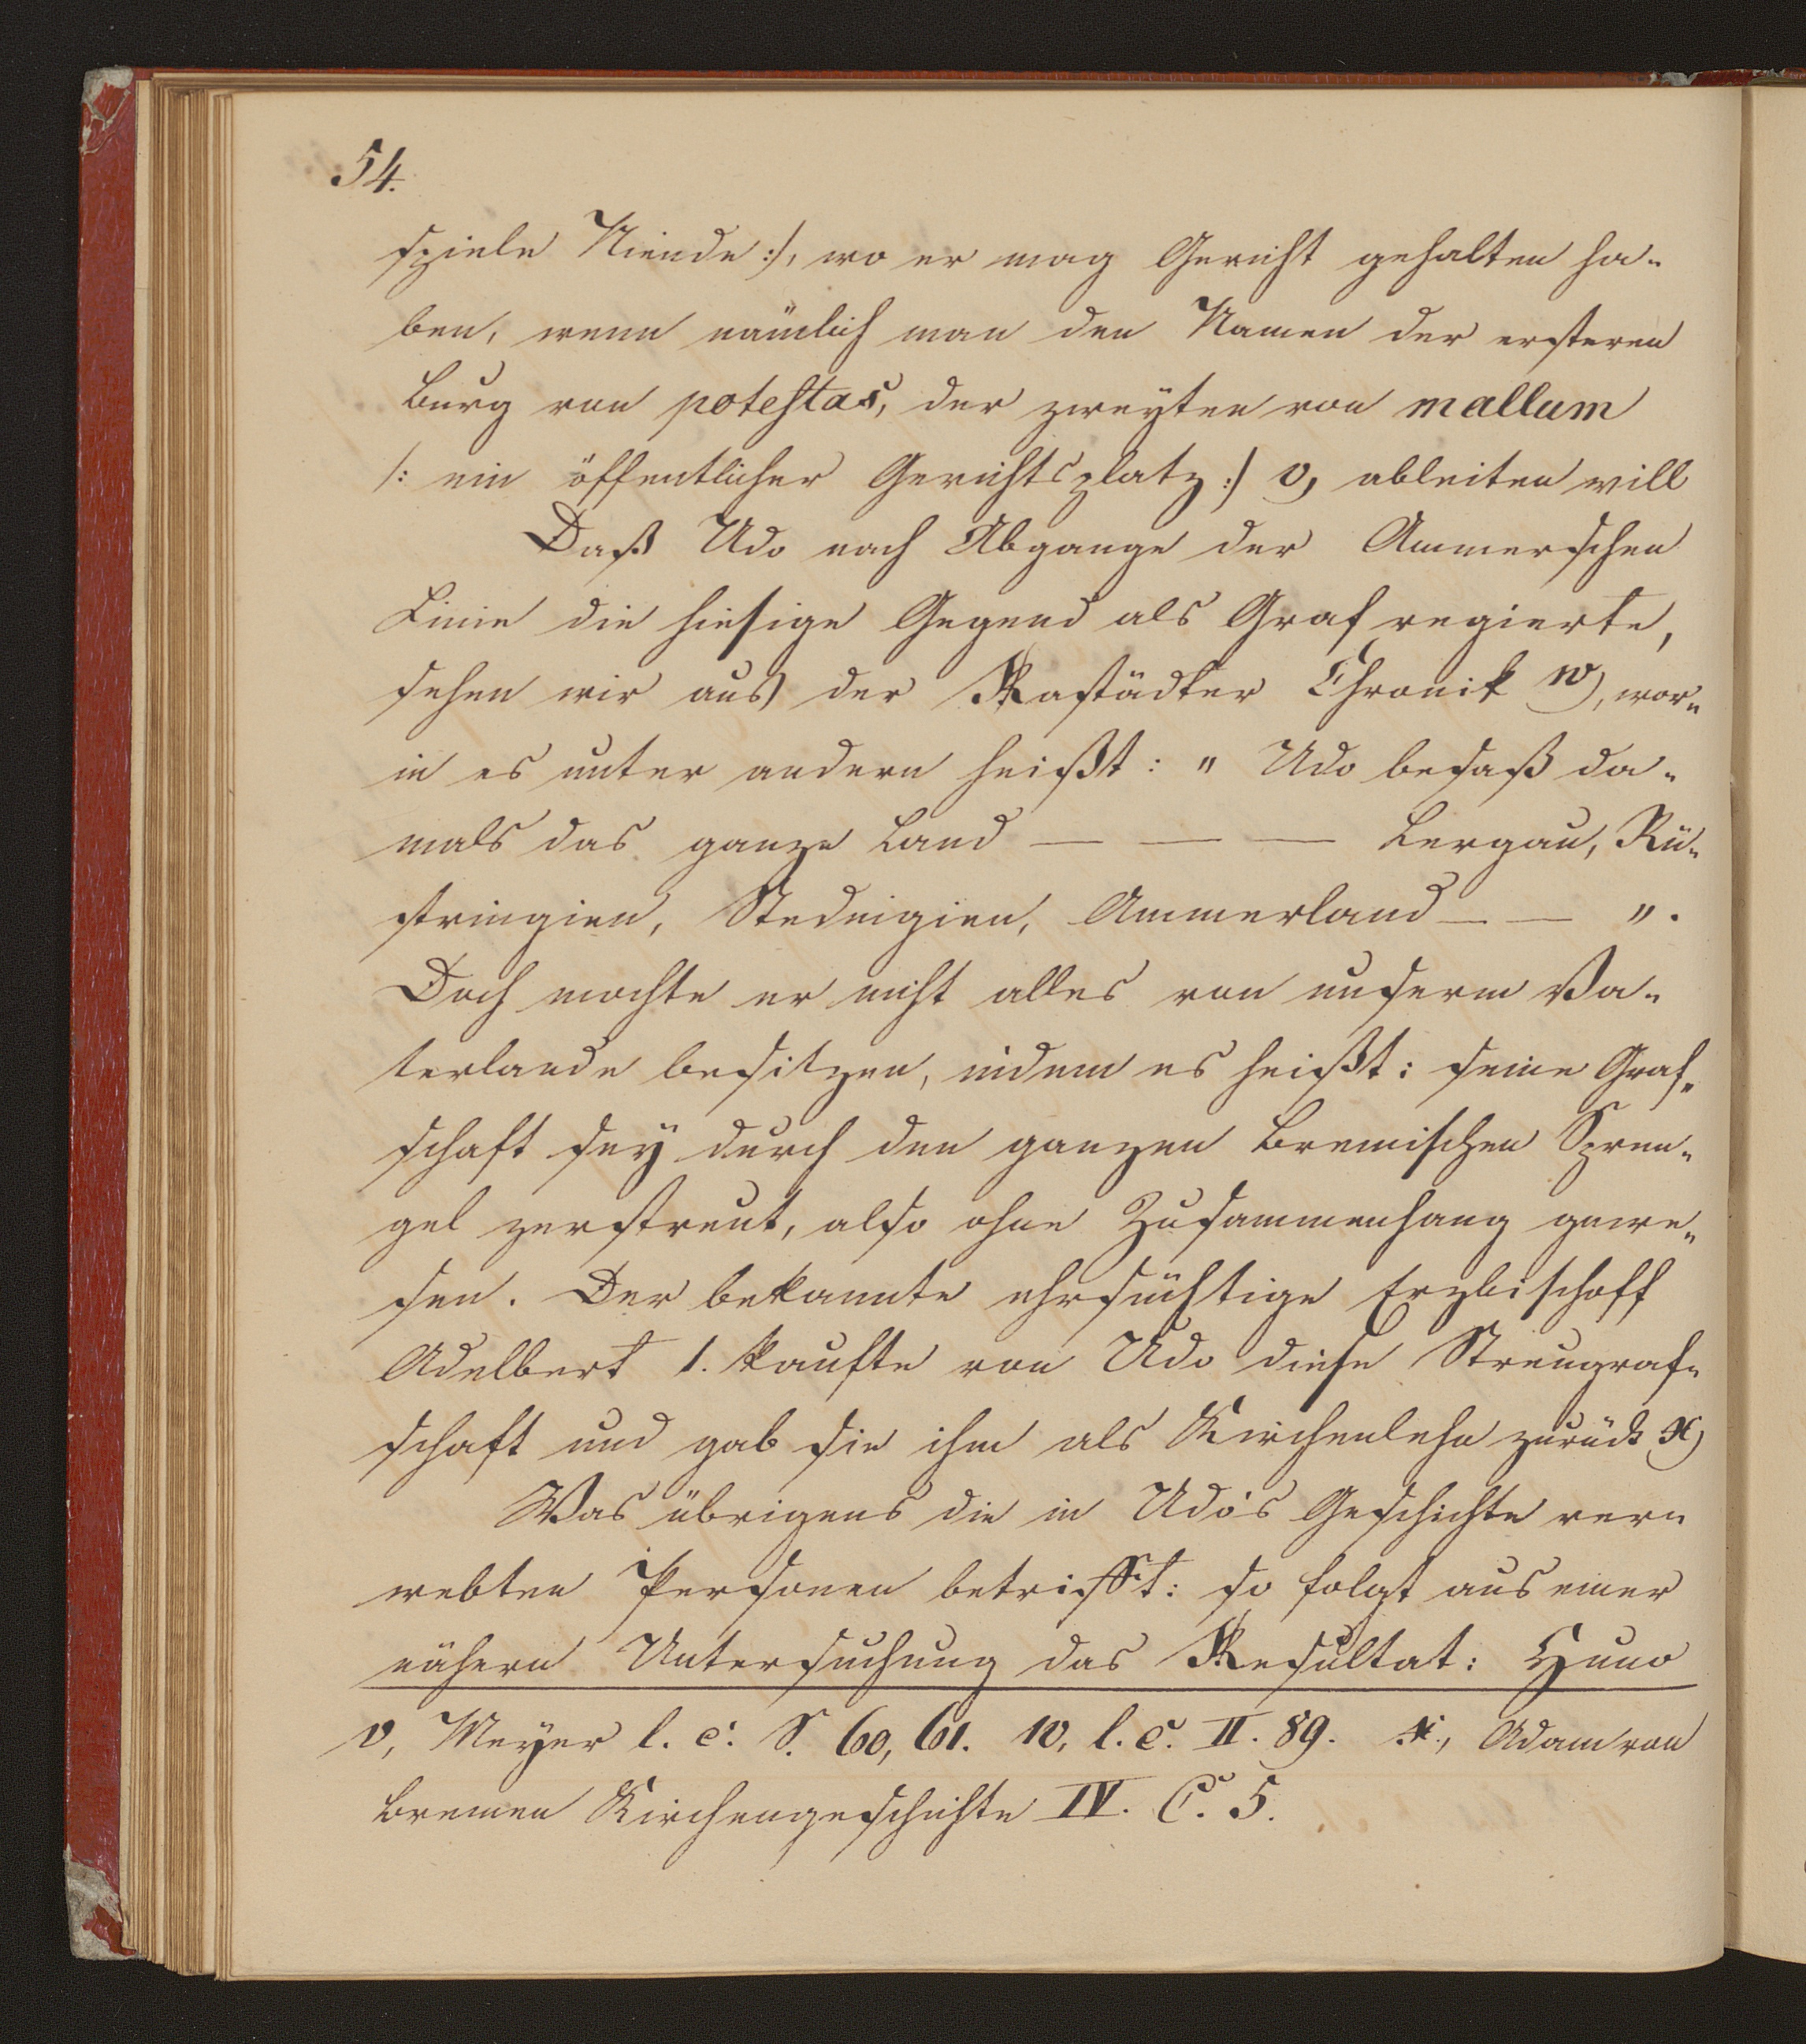 54.
spiele Niende :/, wo er mag Gericht gehalten ha-
ben, wenn nämlich man den Namen der ersteren
Burg von potestas, der zweyten von mallum
/: ein öffentlicher Gerichtsplatz :/ v, ableiten will
Daß Udo nach Abgange der Ammerschen
Linie die hiesige Gegend als Graf regierte,
sehen wir aus der Rastädter Chronik w), wor-
in es unter andern heißt: " Udo besaß da-
mals das ganze Land — — — Lergau, Rü-
stringien, Stedingien, Ammerland — — ".
Doch mochte er nicht alles von unserm Va-
terlande besitzen, indem es heißt: seine Graf-
schaft sey durch den ganzen Bremischen Spren-
gel zerstreut, also ohne Zusammenhang gewe-
sen. Der bekannte ehrsüchtige Erzbischoff
Adelbert 1. kaufte von Udo diese Streugraf-
schaft und gab sie ihm als Kirchenlehn zurück x)
Was übrigens die in Udo's Geschichte ver-
webten Personen betrifft: so folgt aus einer
nähern Untersuchung das Resultat: Huno
v, Meyer l. c. S. 60, 61. w, l. c. II. 89. x, Adam von
Bremen Kirchengeschichte IV. C. 5.